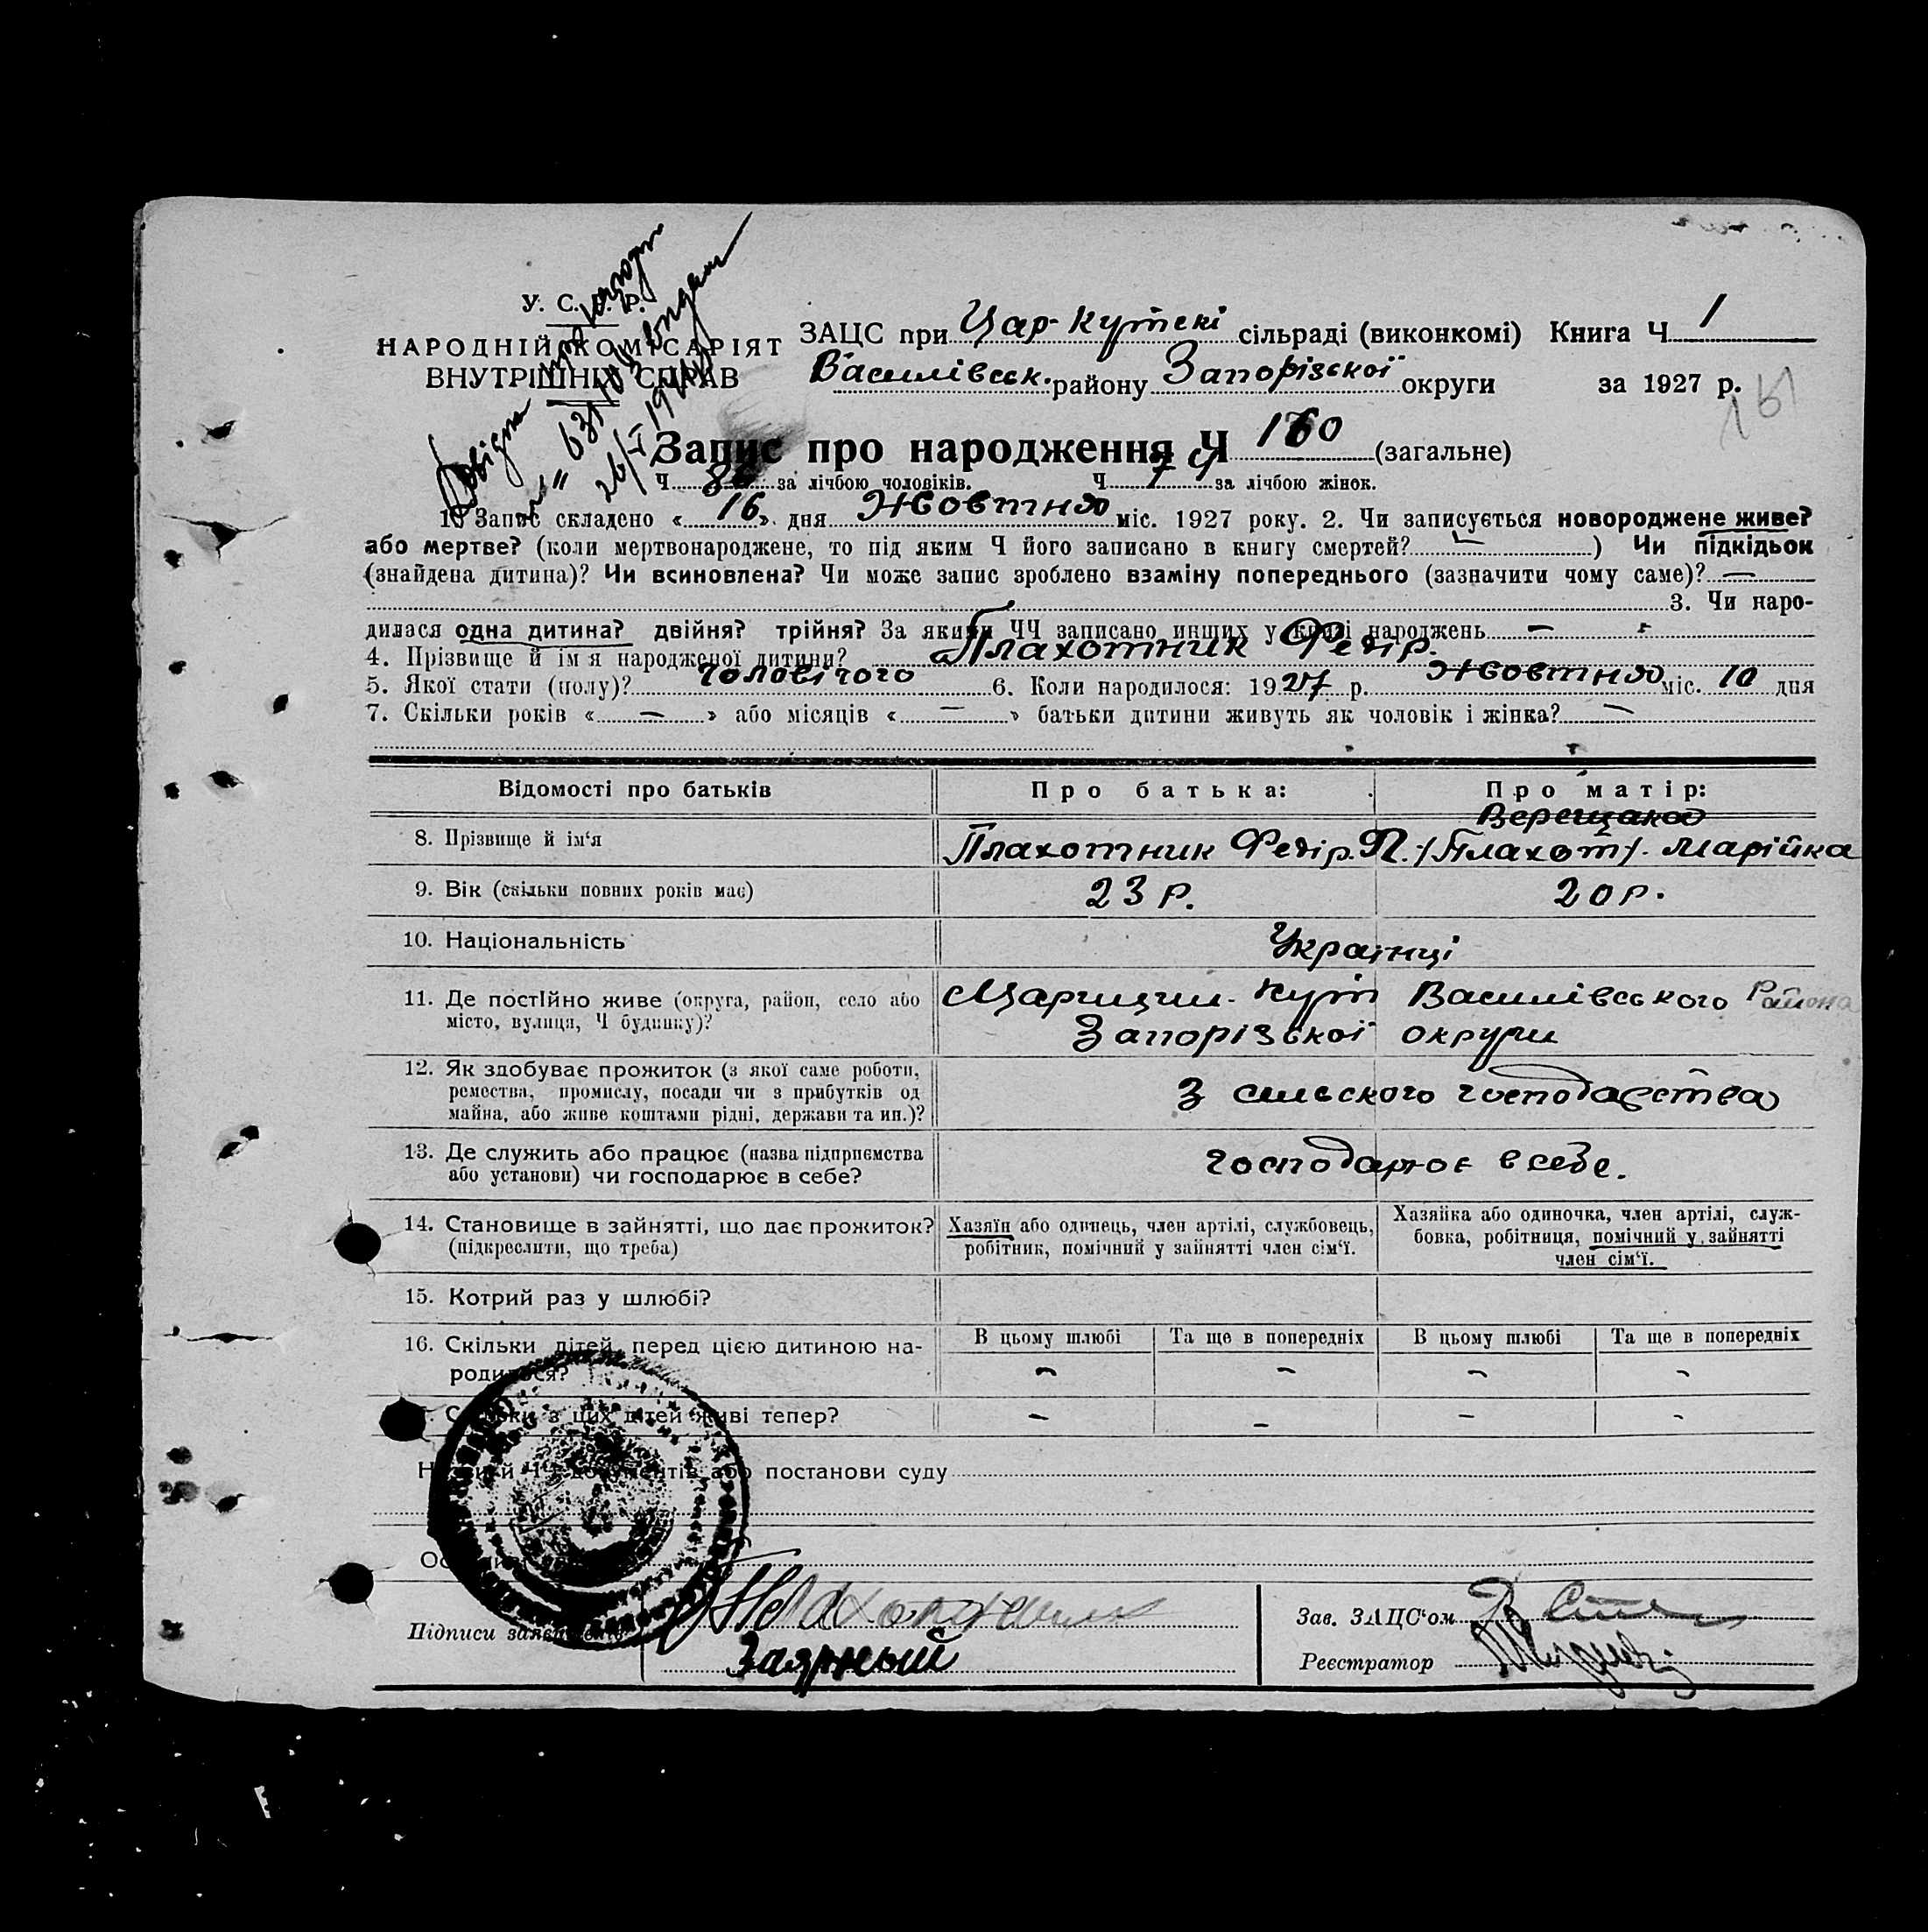 У. С. Р. Р.
НАРОДНІЙ КОМІСАРІЯТ
ВНУТРІШНІХ СПРАВ
ЗАЦС при Цар-Кутскі сільраді (виконкомі) Книга Ч 1
Василівськ. району Запорізської округи за 1927 р.
151
Запис про народження Ч 160 (загальне)
Ч за лічбою чоловіків. Ч за лічбою жінок.
1. Запис складено «16» дня Жовтня міс. 1927 року. 2. Чи записується новороджене живе?
або мертве? (коли мертвонароджене, то під яким Ч його записано в книгу смертей? —) Чи підкідьок
(знайдена дитина)? Чи всиновлена? Чи може запис зроблено взаміну попереднього (зазначити чому саме)? —
3. Чи наро-
дилася одна дитина? двійня? трійня? За якими ЧЧ записано инших у книзі народжень —
4. Прізвище й ім'я народженої дитини? Плахотник Федір.
5. Якої стати (полу)? чоловічого 6. Коли народилося: 1927 р. Жовтня міс. 10 дня
7. Скільки років «—» або місяців «—» батьки дитини живуть як чоловік і жінка? —
Відомості про батьків Про батька: Про матір:
Верещака
8. Прізвище й ім'я Плахотник Федір. П. /Плахот/. Марійка
9. Вік (скільки повних років має) 23 р. 20 р.
10. Національність Українці
11. Де постійно живе (округа, район, село або Царицин-Кут Василівського Района
місто, вулиця, Ч будинку)? Запорізської округи
12. Як здобуває прожиток (з якої саме роботи,
ремества, промислу, посади чи з прибутків од
майна, або живе коштами рідні, держави та ин.)? З сільського господарства
13. Де служить або працює (назва підприємства
або установи) чи господарює в себе? господарює в себе.
14. Становище в зайнятті, що дає прожиток? Хазяїн або одинець, член артілі, службовець, Хазяйка або одиночка, член артілі, служ-
(підкреслити, що треба) робітник, помічний у зайнятті член сім'ї. бовка, робітниця, помічний у зайнятті
член сім'ї.
15. Котрий раз у шлюбі?
16. Скільки дітей перед цією дитиною на- В цьому шлюбі Та ще в попередніх В цьому шлюбі Та ще в попередніх
родилося? — — — —
17. Скільки з цих дітей живі тепер? — — — —
Назви й ЧЧ документів або постанови суду
Підписи заявителів Плахотник Зав. ЗАЦС'ом
Заярный Реєстратор